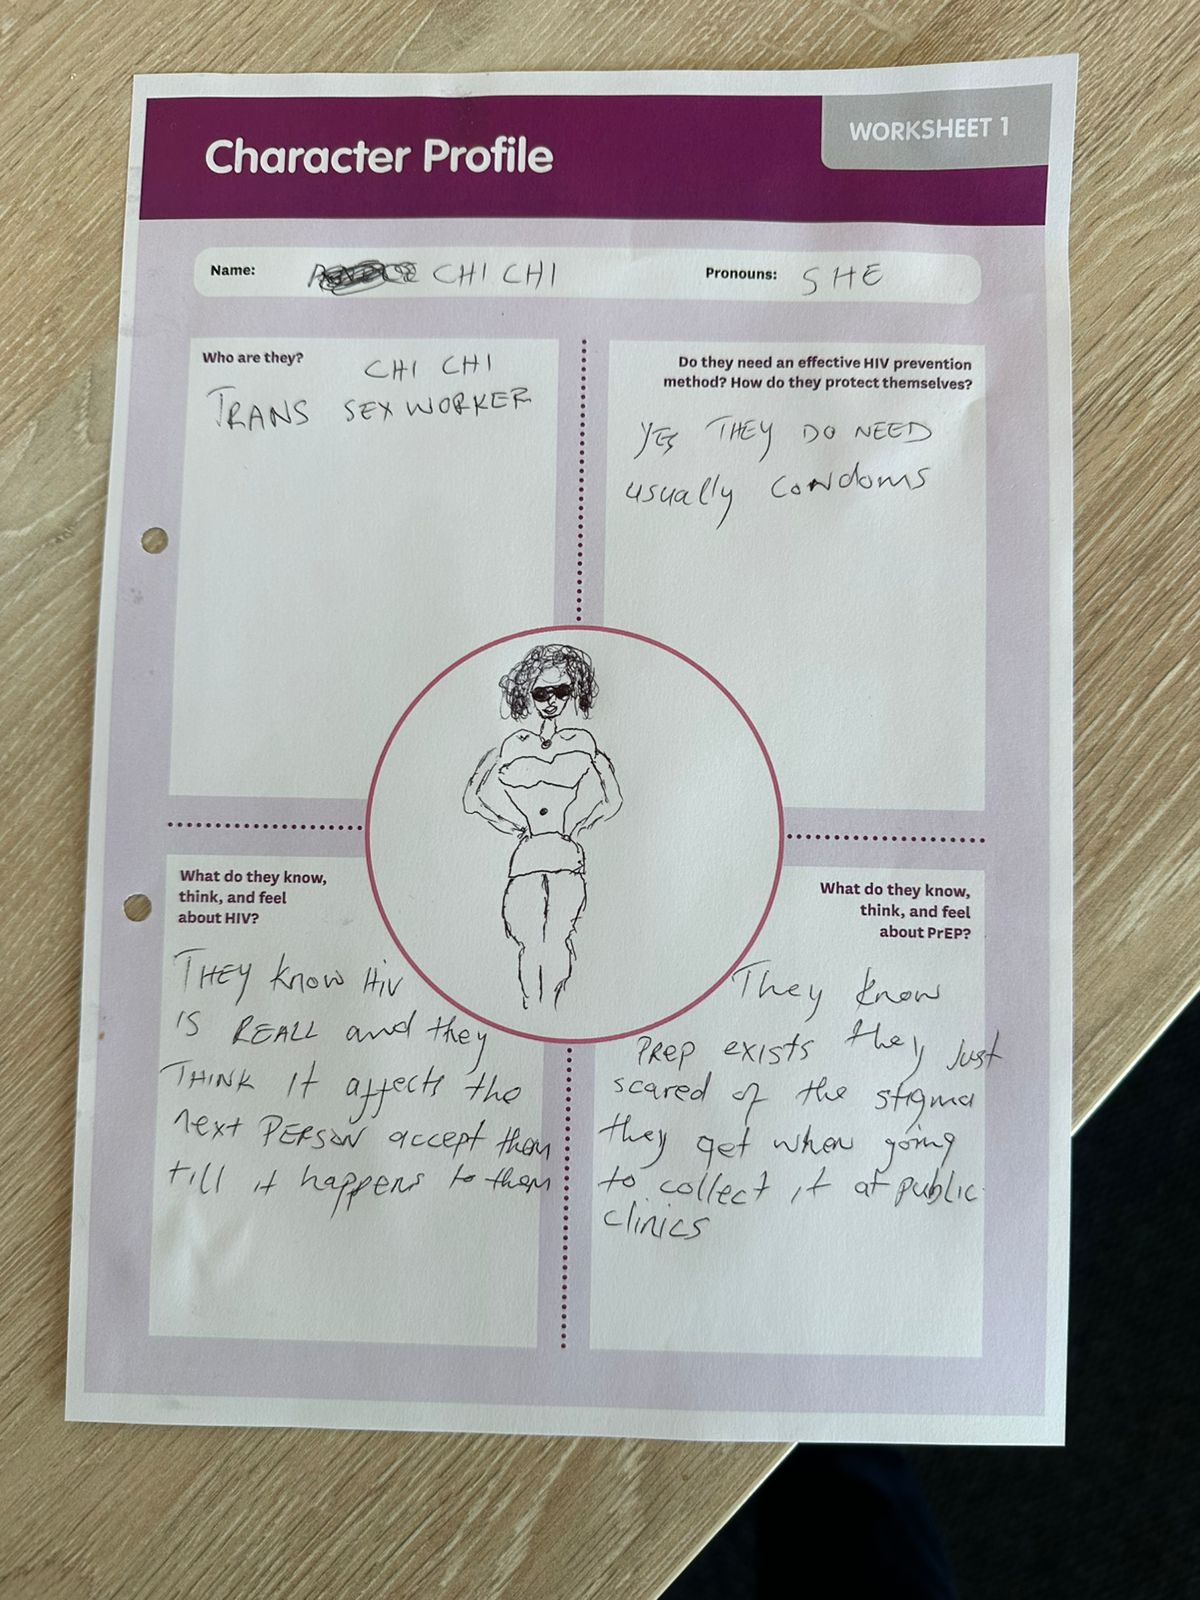 WORKSHEET 1
Character Profile
Name: CHI CHI
Pronouns: SHE
Who are they?
CHI CHI
TRANS SEX WORKER
Do they need an effective HIV prevention
method? How do they protect themselves?
YES THEY DO NEED
usually CONdoms
What do they know,
think, and feel
about HIV?
THEY know HIV
IS REALL and they
THINK It affects the
next PERSON accept them
till it happens to them
What do they know,
think, and feel
about PrEP?
They know
PREP exists they Just
scared of the stigma
they get when going
to collect it at public
clinics